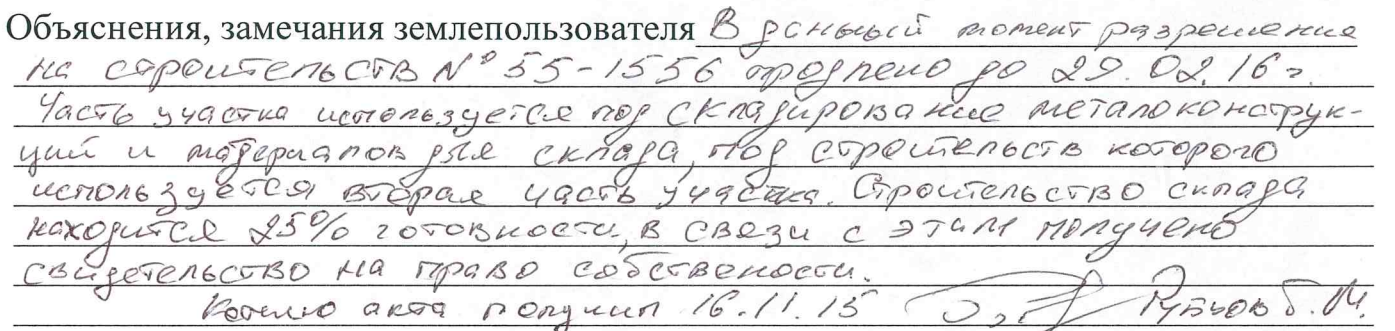 Объяснения, замечания землепользователя В данный момент разрешение
на строительств № 55-1556 продлено до 29.02.16 г.
Часть участка используется под складирование металоконструк-
ций и материалов для склада, под строительств которого
используется вторая часть участка. Строительство склада
находится 25% готовности, в связи с этим получено
свидетельство на право собствености.
Копию акта получил 16.11.15